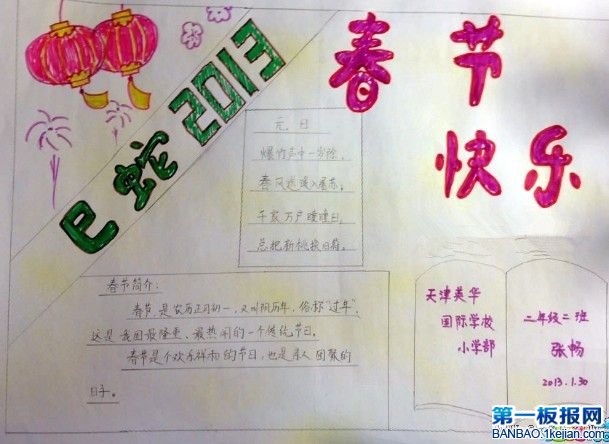 春节
快乐
巳蛇 2013
元日
爆竹声中一岁除，
春风送暖入屠苏。
千家万户曈曈日，
总把新桃换旧符。
春节简介：
春节是农历正月初一，又叫阴历年，俗称“过年”。
这是我国最隆重、最热闹的一个传统节日。
春节是个欢乐祥和的节日，也是亲人团聚的
日子。
天津英华
国际学校
小学部
二年级二班
张畅
2013.1.30
第一板报网
BANBAO.1kejian.com